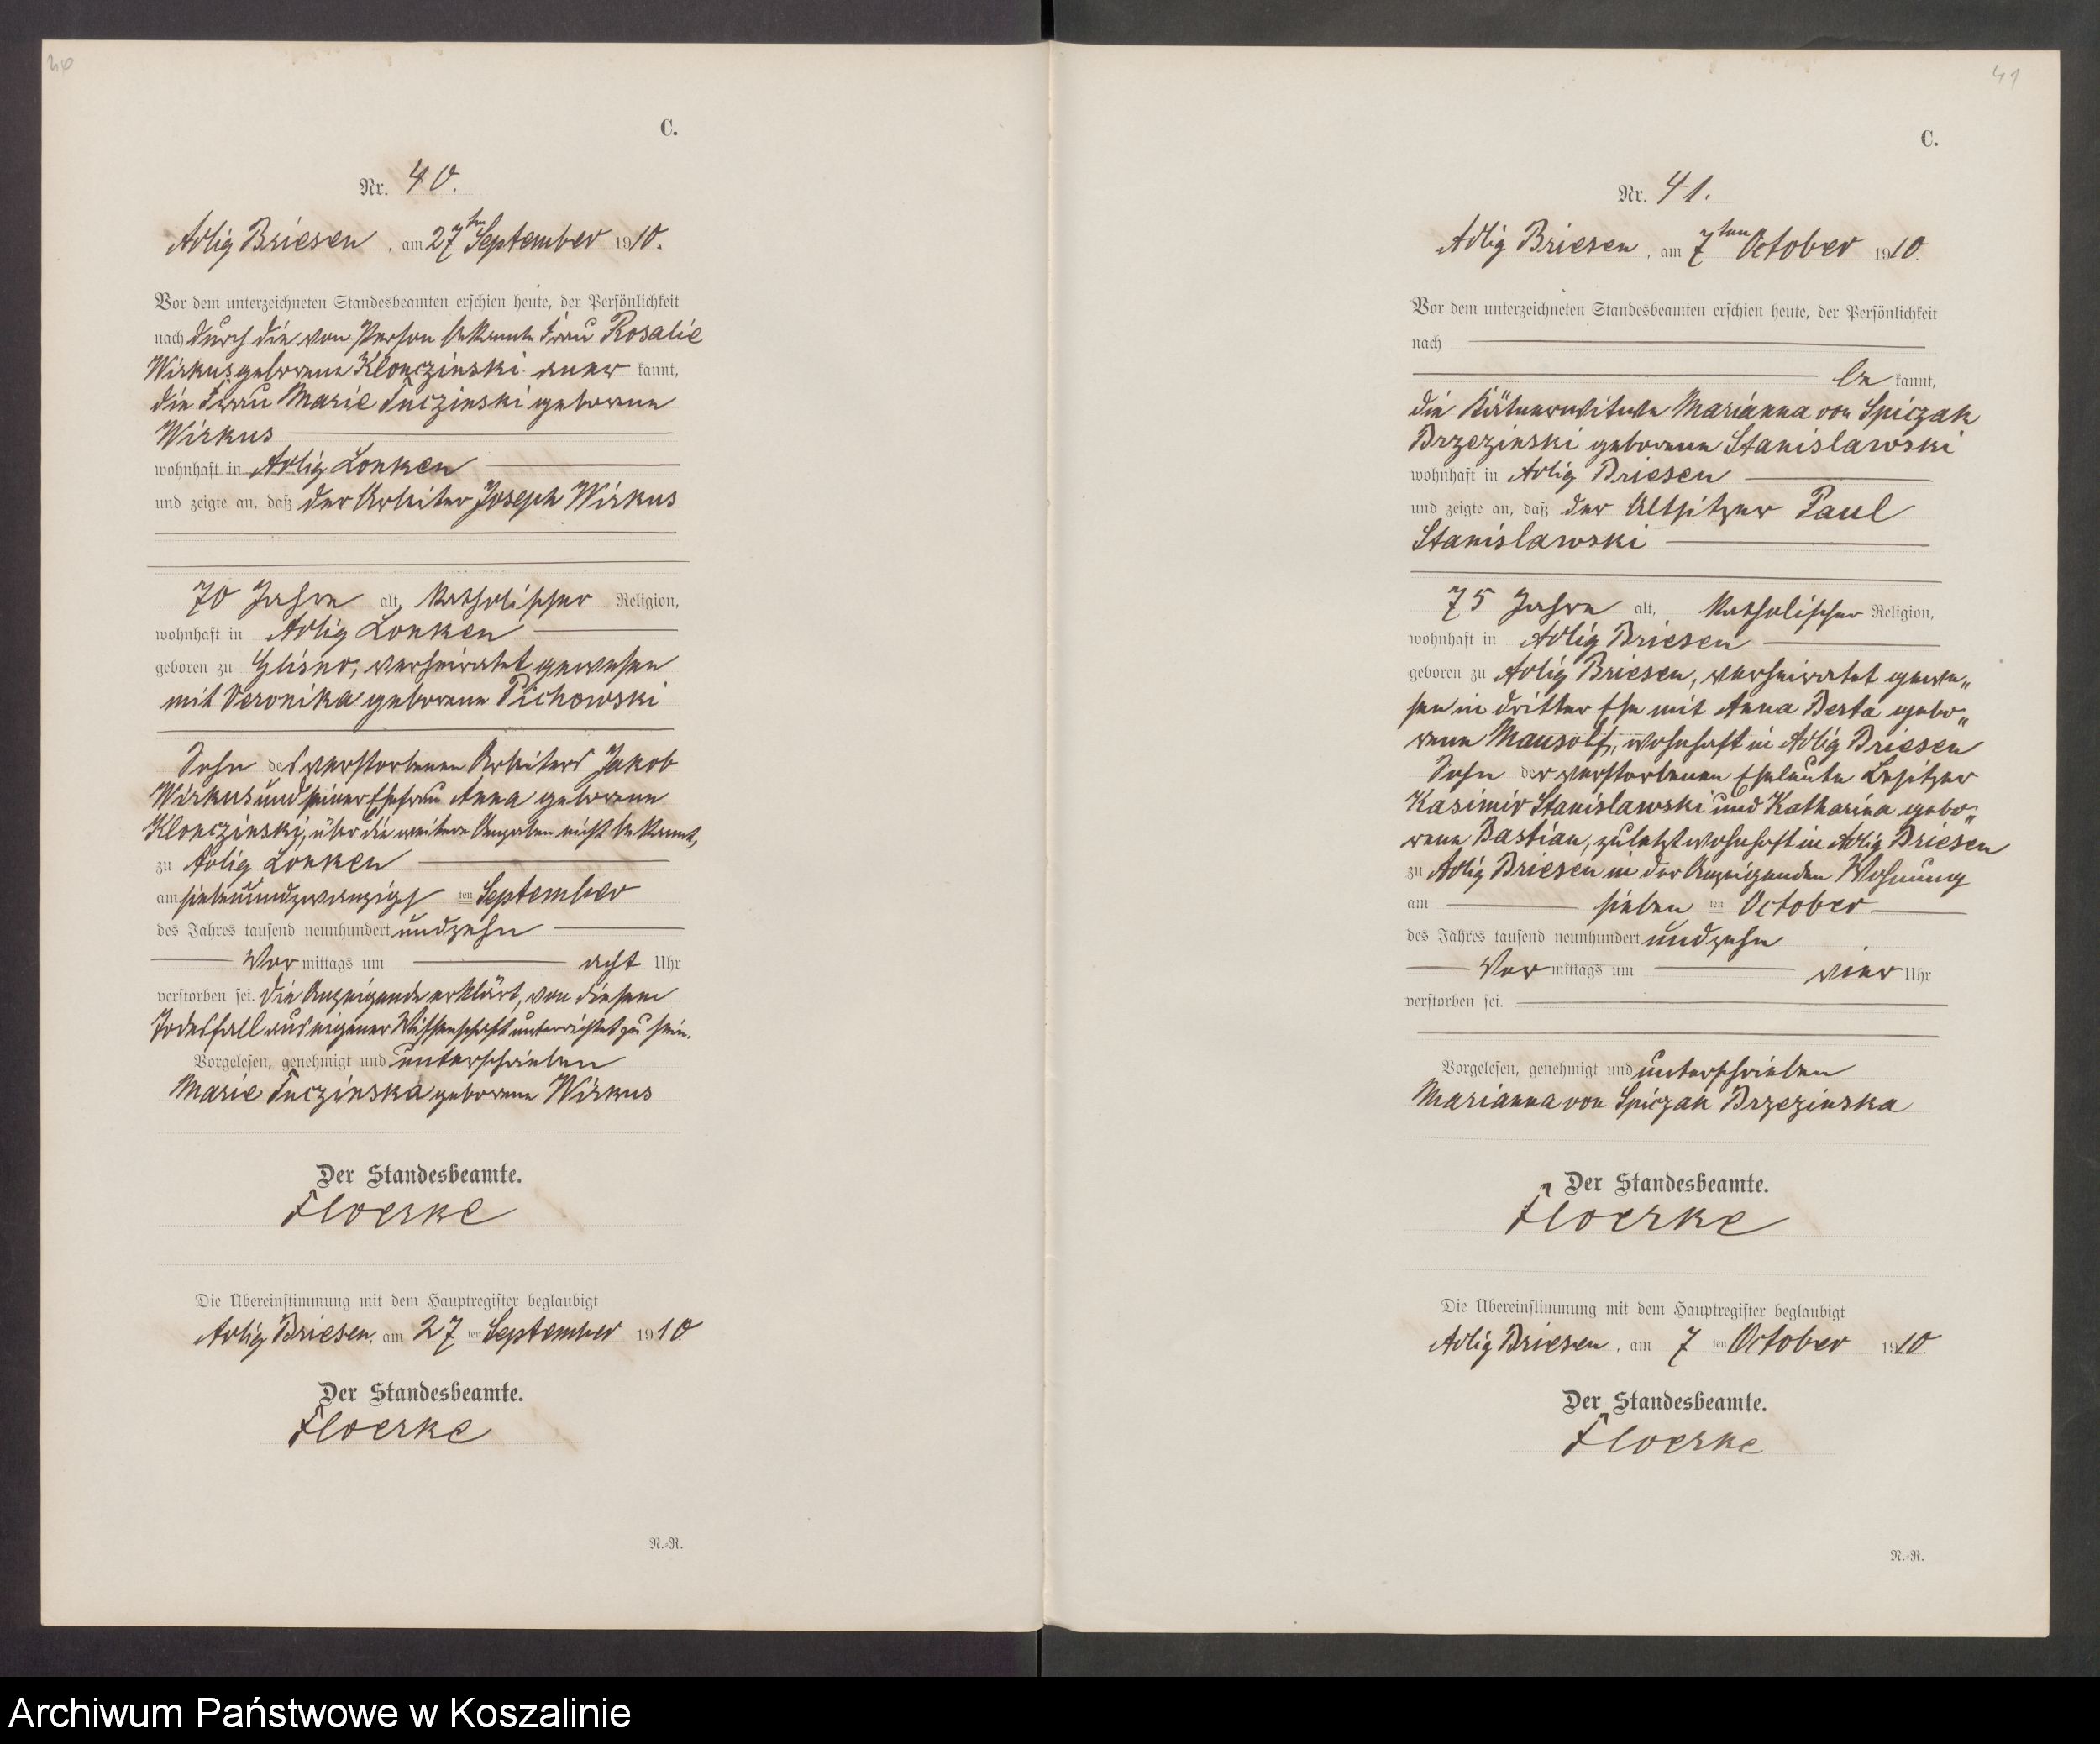 40
C.
Nr. 40.
Adlig Briesen, am 27ten September 1910.
Vor dem unterzeichneten Standesbeamten erschien heute, der Persönlichkeit
nach durch die von Person bekannte Frau Rosalie
Wirkus geborene Klonczinski aner kannt,
die Frau Marie Tuczinski geborene
Wirkus
wohnhaft in Adlig Lonken
und zeigte an, daß der Arbeiter Joseph Wirkus
70 Jahre alt, katholischer Religion,
wohnhaft in Adlig Lonken
geboren zu Glisno, verheiratet gewesen
mit Veronika geborene Pichowski
Sohn des verstorbenen Arbeiters Jakob
Wirkus und seiner Ehefrau Anna geborene
Klonczinski, über die weitere Angaben nicht bekannt,
zu Adlig Lonken
am siebenundzwanzigsten September
des Jahres tausend neunhundert undzehn
Vor mittags um acht Uhr
verstorben sei. Die Anzeigende erklärt, von diesem
Todesfall aus eigener Wissenschaft unterrichtet zu sein.
Vorgelesen, genehmigt und unterschrieben
Marie Tuczinska geborene Wirkus
Der Standesbeamte.
Floerke
Die Übereinstimmung mit dem Hauptregister beglaubigt
Adlig Briesen, am 27 ten September 1910
Der Standesbeamte.
Floerke
N.-R.
41
C.
Nr. 41.
Adlig Briesen, am 7ten October 1910.
Vor dem unterzeichneten Standesbeamten erschien heute, der Persönlichkeit
nach
be kannt,
die Kätnerwitwe Marianna von Spiczak
Brzezinski geborene Stanislawski
wohnhaft in Adlig Briesen
und zeigte an, daß der Altsitzer Paul
Stanislawski
75 Jahre alt, katholischer Religion,
wohnhaft in Adlig Briesen
geboren zu Adlig Briesen, verheiratet gewe„
sen in dritter Ehe mit Anna Berta gebo„
rene Mausolf, wohnhaft in Adlig Briesen
Sohn der verstorbenen Eheleute Besitzer
Kasimir Stanislawski und Katharina gebo„
rene Bastian, zuletzt wohnhaft in Adlig Briesen
zu Adlig Briesen in der Anzeigenden Wohnung
am sieben ten October
des Jahres tausend neunhundert undzehn
Vor mittags um vier Uhr
verstorben sei.
Vorgelesen, genehmigt und unterschrieben
Marianna von Spiczak Brzezinska
Der Standesbeamte.
Floerke
Die Übereinstimmung mit dem Hauptregister beglaubigt
Adlig Briesen, am 7 ten October 1910.
Der Standesbeamte.
Floerke
N.-R.
Archiwum Państwowe w Koszalinie